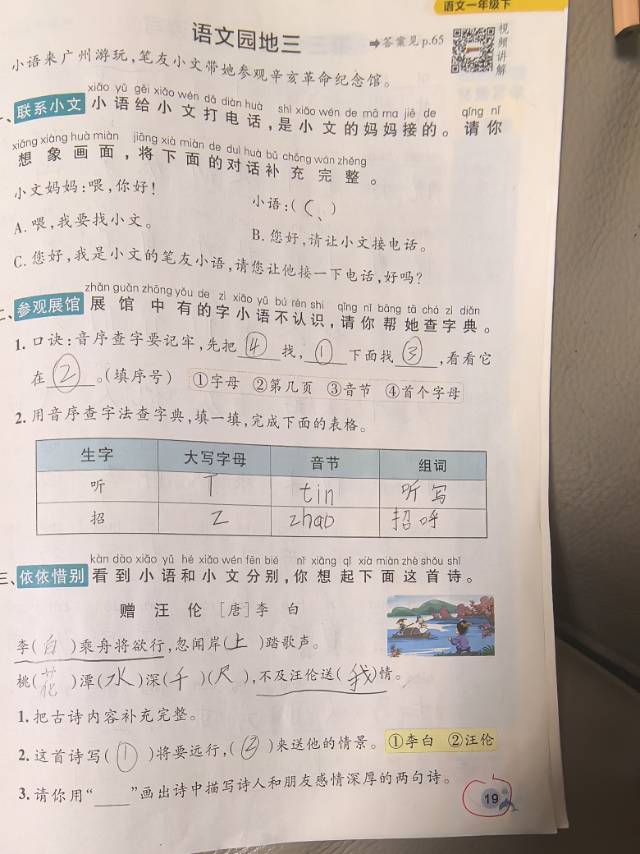 语文一年级下
语文园地三
➡答案见p.65
视频讲解
小语来广州游玩,笔友小文带她参观辛亥革命纪念馆。
xiǎo yǔ gěi xiǎo wén dǎ diàn huà shì xiǎo wén de mā ma jiē de qǐng nǐ
一、联系小文 小语给小文打电话,是小文的妈妈接的。请你
xiǎng xiàng huà miàn jiāng xià miàn de duì huà bǔ chōng wán zhěng
想象画面,将下面的对话补充完整。
小文妈妈:喂,你好!
小语:( C、 )
A. 喂,我要找小文。
B. 您好,请让小文接电话。
C. 您好,我是小文的笔友小语,请您让他接一下电话,好吗?
zhǎn guǎn zhōng yǒu de zì xiǎo yǔ bú rèn shi qǐng nǐ bāng tā chá zì diǎn
二、参观展馆 展馆中有的字小语不认识,请你帮她查字典。
1. 口诀:音序查字要记牢,先把④找,①下面找③,看看它
在②。(填序号) ①字母 ②第几页 ③音节 ④首个字母
2. 用音序查字法查字典,填一填,完成下面的表格。
生字 大写字母 音节 组词
听 T tin 听写
招 Z zhao 招呼
kàn dào xiǎo yǔ hé xiǎo wén fēn bié nǐ xiǎng qǐ xià miàn zhè shǒu shī
三、依依惜别 看到小语和小文分别,你想起下面这首诗。
赠汪伦 [唐]李白
李( 白 )乘舟将欲行,忽闻岸( 上 )踏歌声。
桃( 花 )潭( 水 )深( 千 )( 尺 ),不及汪伦送( 我 )情。
1. 把古诗内容补充完整。
2. 这首诗写( ① )将要远行,( ② )来送他的情景。 ①李白 ②汪伦
3. 请你用“____”画出诗中描写诗人和朋友感情深厚的两句诗。
19